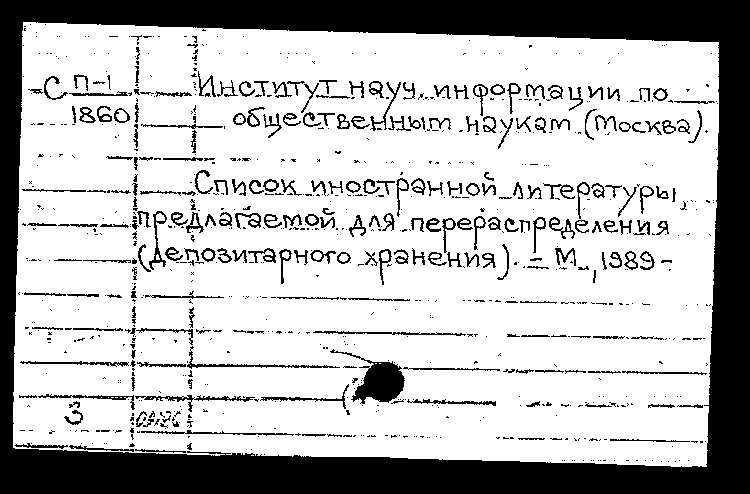 С П-1 Институт науч. информации по
1860 общественным наукам (Москва).
Список иностранной литературы,
предлагаемой для перераспределения
(депозитарного хранения). – М., 1989 –